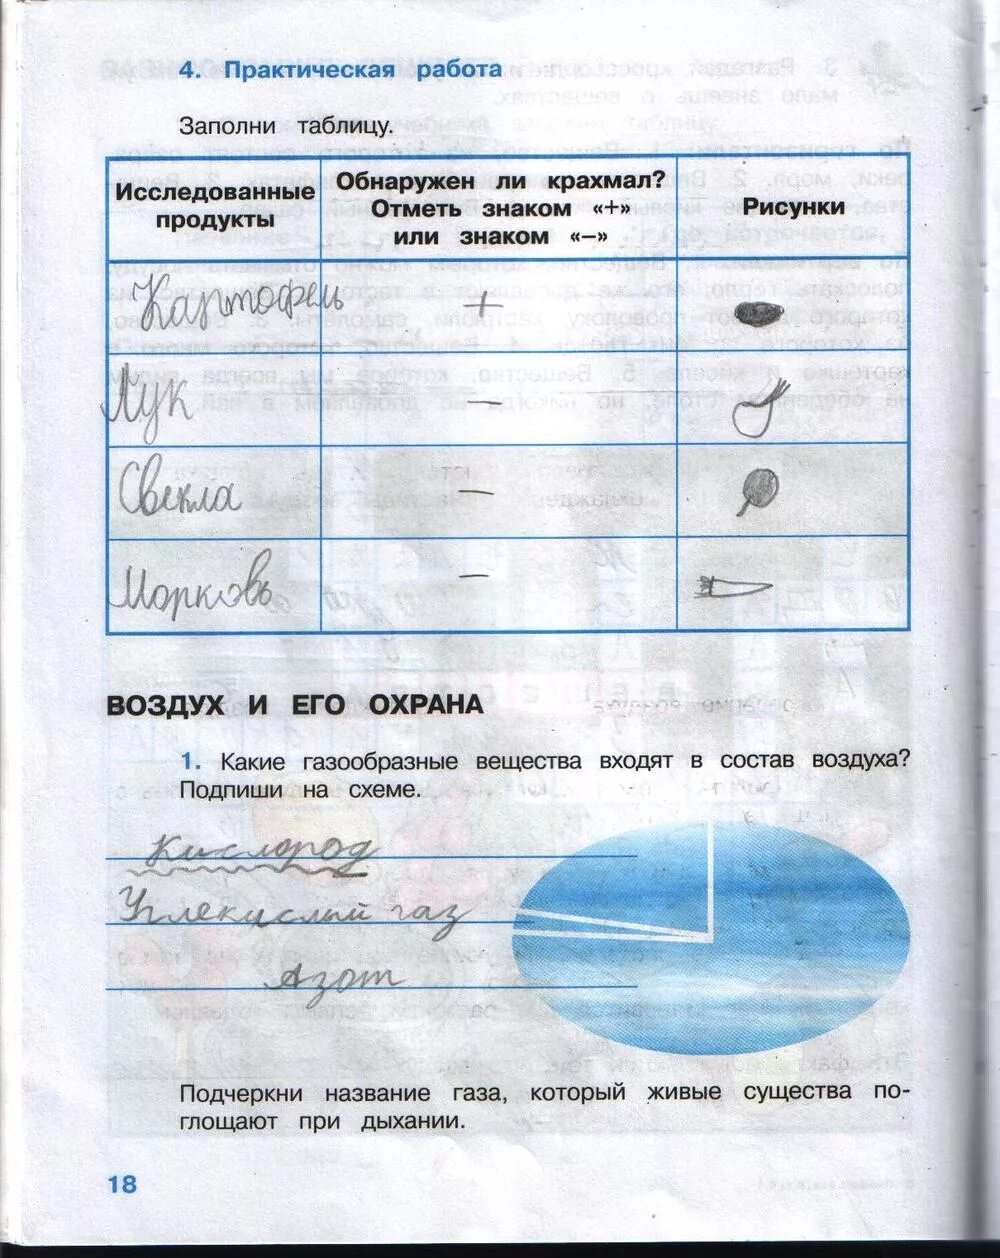 4. Практическая работа
Заполни таблицу.
Исследованные продукты
Обнаружен ли крахмал? Отметь знаком «+» или знаком «–»
Рисунки
Картофель +
Лук –
Свекла –
Морковь –
ВОЗДУХ И ЕГО ОХРАНА
1. Какие газообразные вещества входят в состав воздуха?
Подпиши на схеме.
Кислород
Углекислый газ
Азот
Подчеркни название газа, который живые существа по-
глощают при дыхании.
18